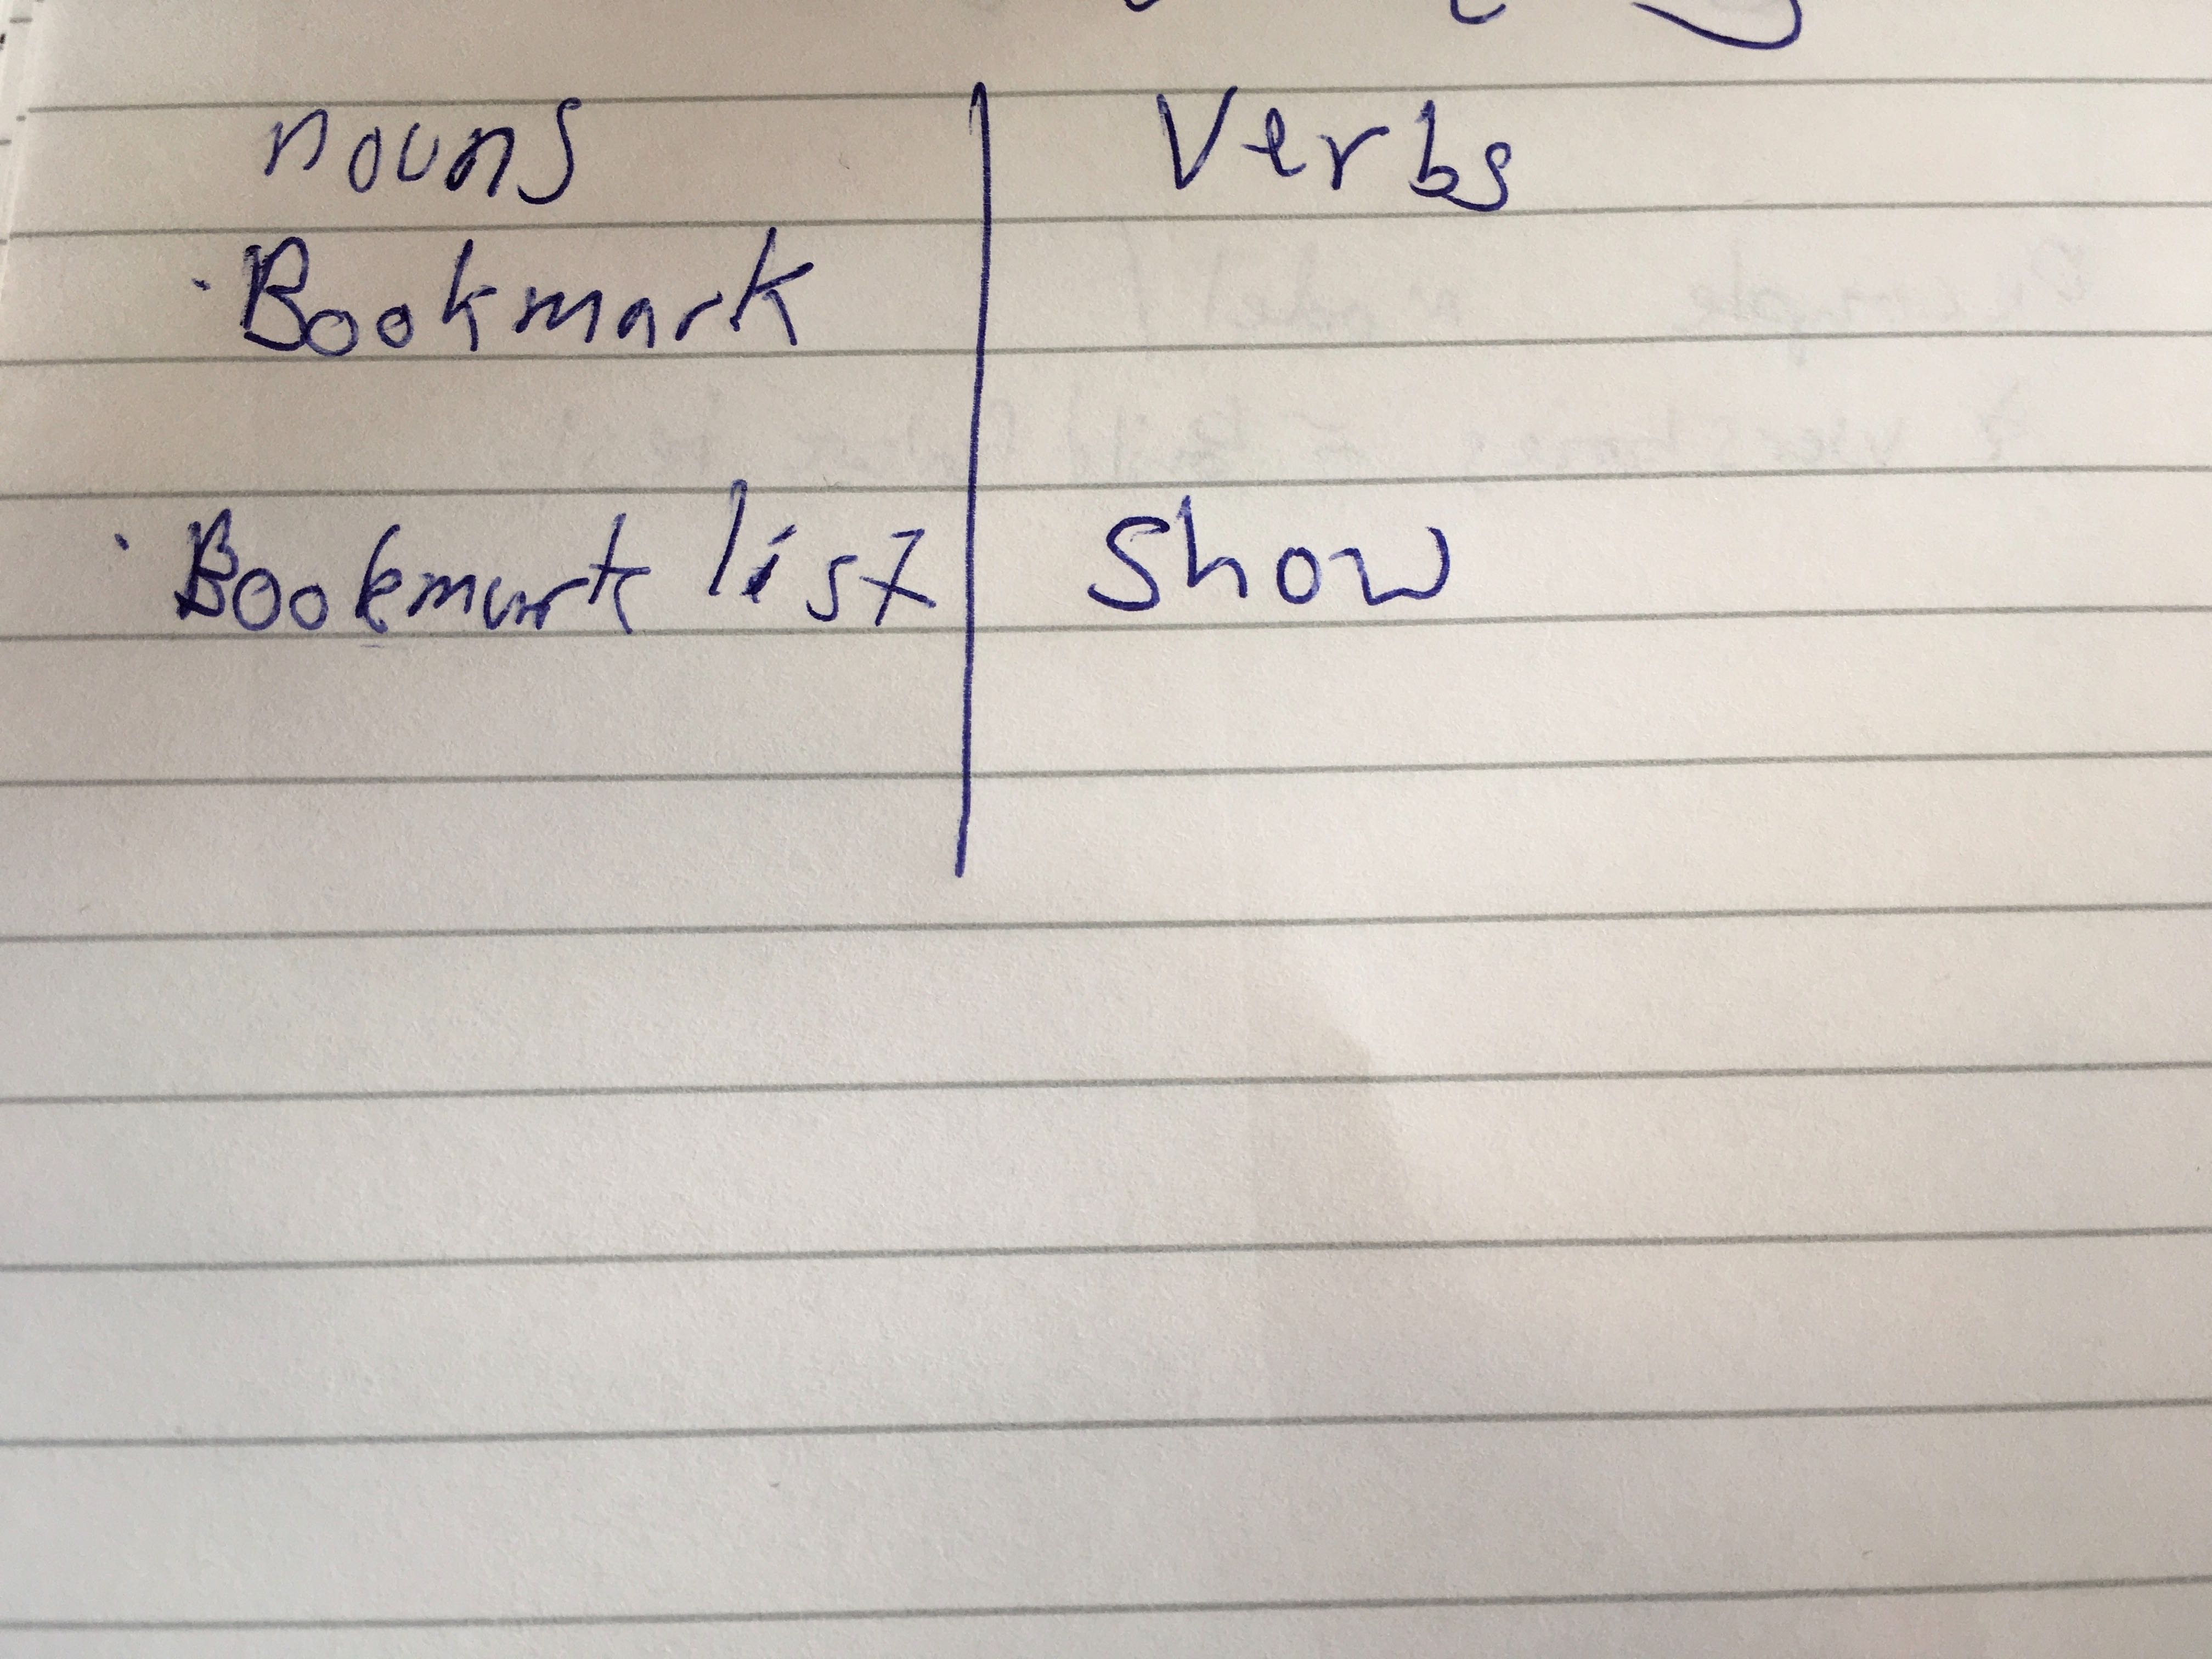 nouns Verbs
· Bookmark
· Bookmark list Show